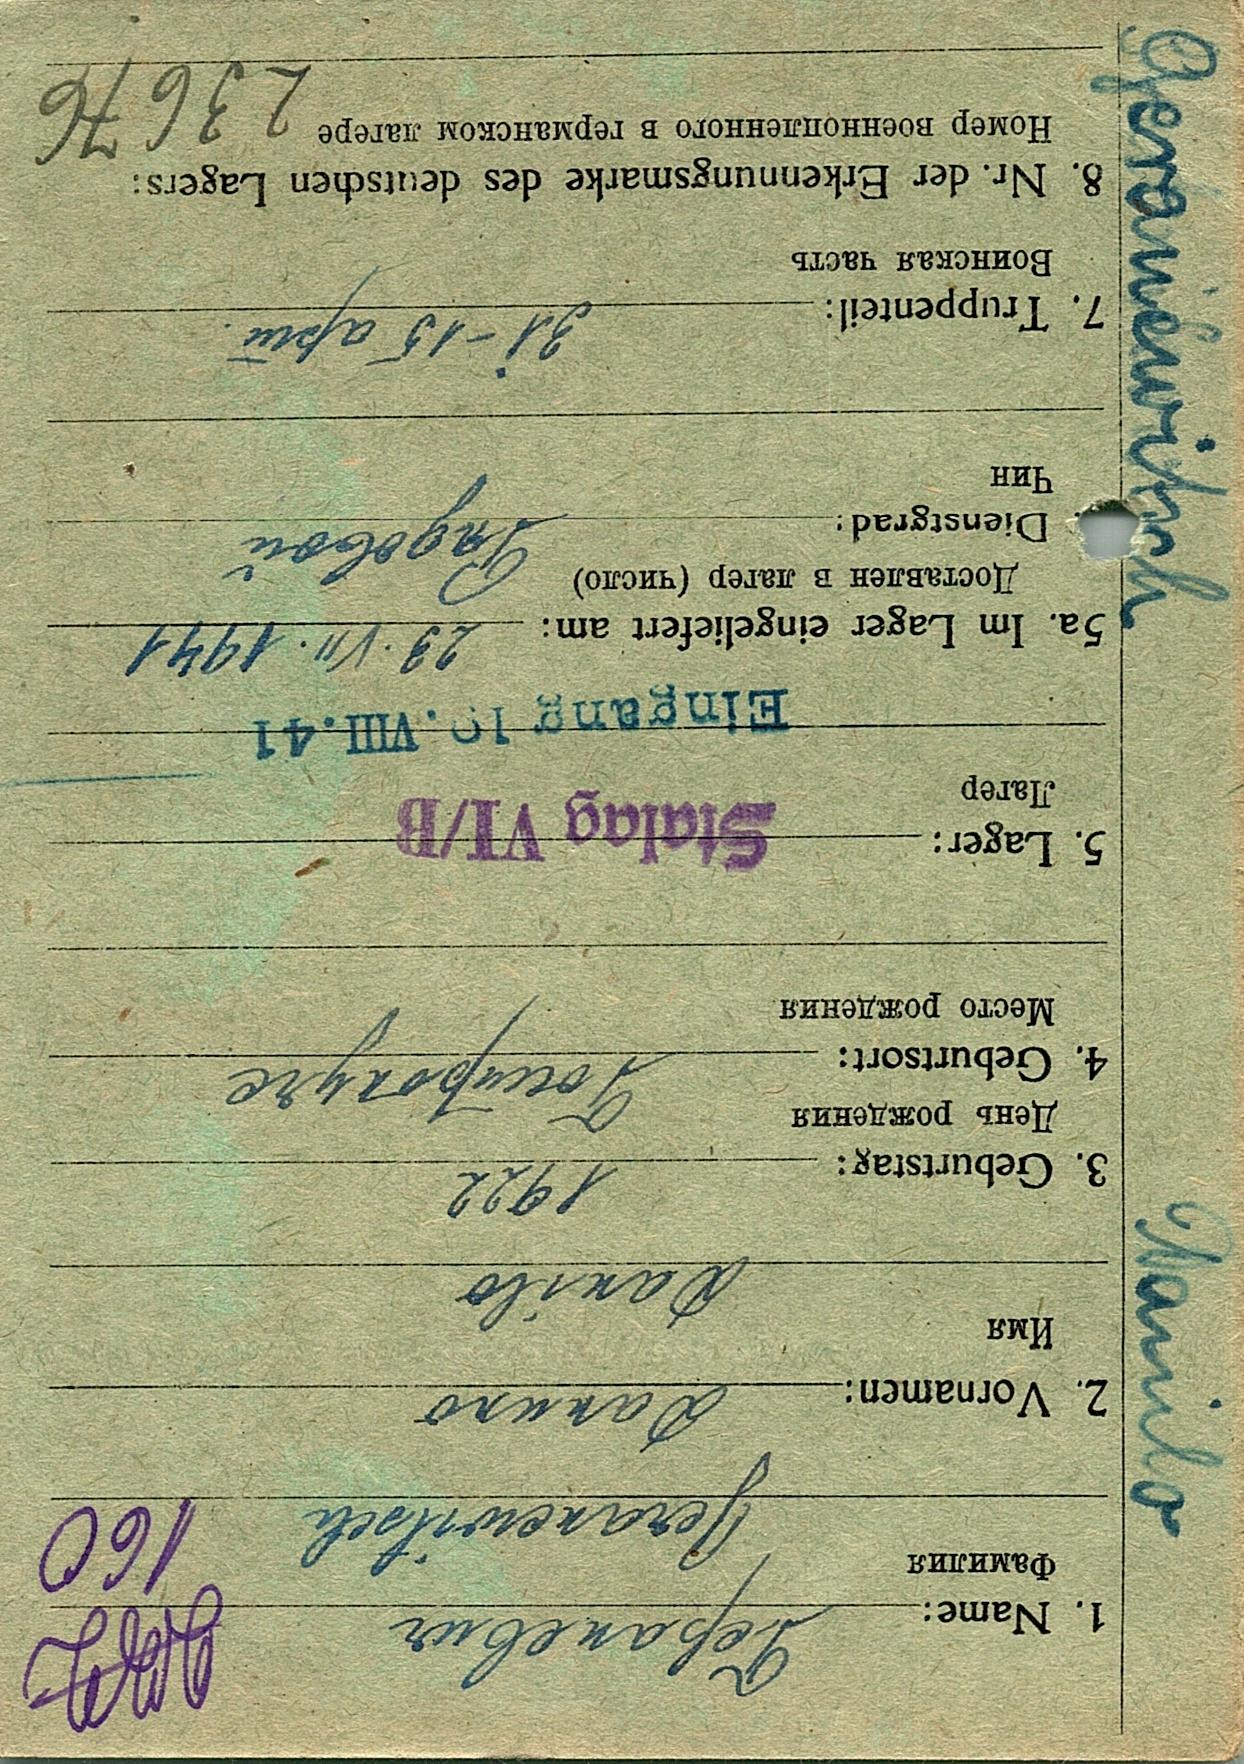 1. Name: Гераневич
Фамилия Geranewitsch
160
2. Vornamen: Данило
Имя
Danilo
3. Geburtstag: 1922
День рождения
4. Geburtsort:
Место рождения
5. Lager: Stalag VI/B
Лагер
Eingang 10. VIII. 41
5a. Im Lager eingeliefert am: 23. VII. 1941
Доставлен в лагер (число)
Dienstgrad: Рядовой
Чин
7. Truppenteil: 31-15 арт.
Воинская часть
8. Nr. der Erkennungsmarke des deutschen Lagers:
Номер военнопленного в германском лагере 23676
Danilo Geranewitsch